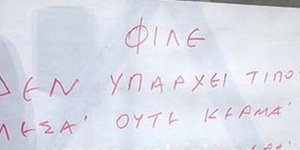 ΦΙΛΕ
ΔΕΝ ΥΠΑΡΧΕΙ ΤΙΠΟ
ΜΕΣΑ' ΟΥΤΕ ΚΕΡΜΑ'